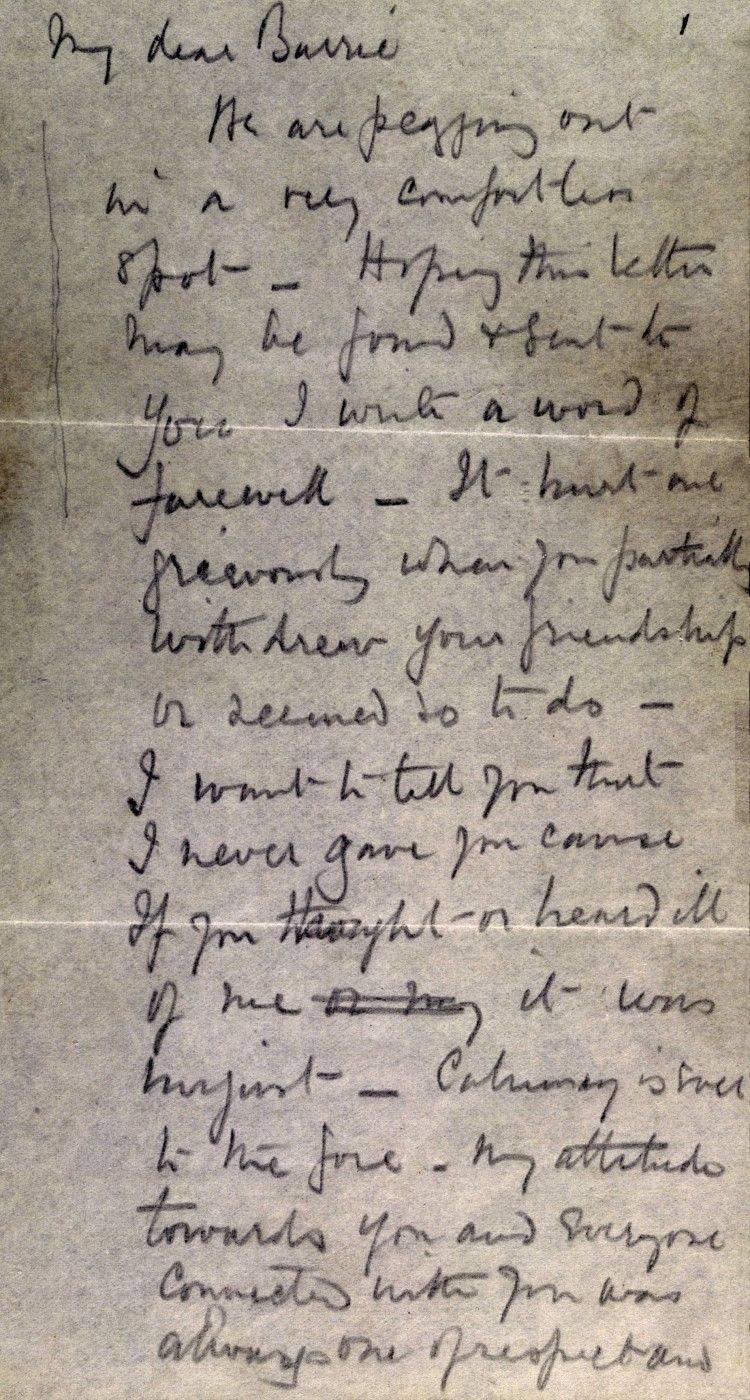 1
My dear Barrie
We are pegging out
in a very comfortless
spot — Hoping this letter
may be found & sent to
you I write a word of
farewell — It hurt me
grievously when you partially
withdrew your friendship
or seemed so to do —
I want to tell you that
I never gave you cause
If you thought or heard ill
of me or my it was
unjust — Calumny is ever
to the fore - My attitude
towards you and everyone
connected with you was
always one of respect and